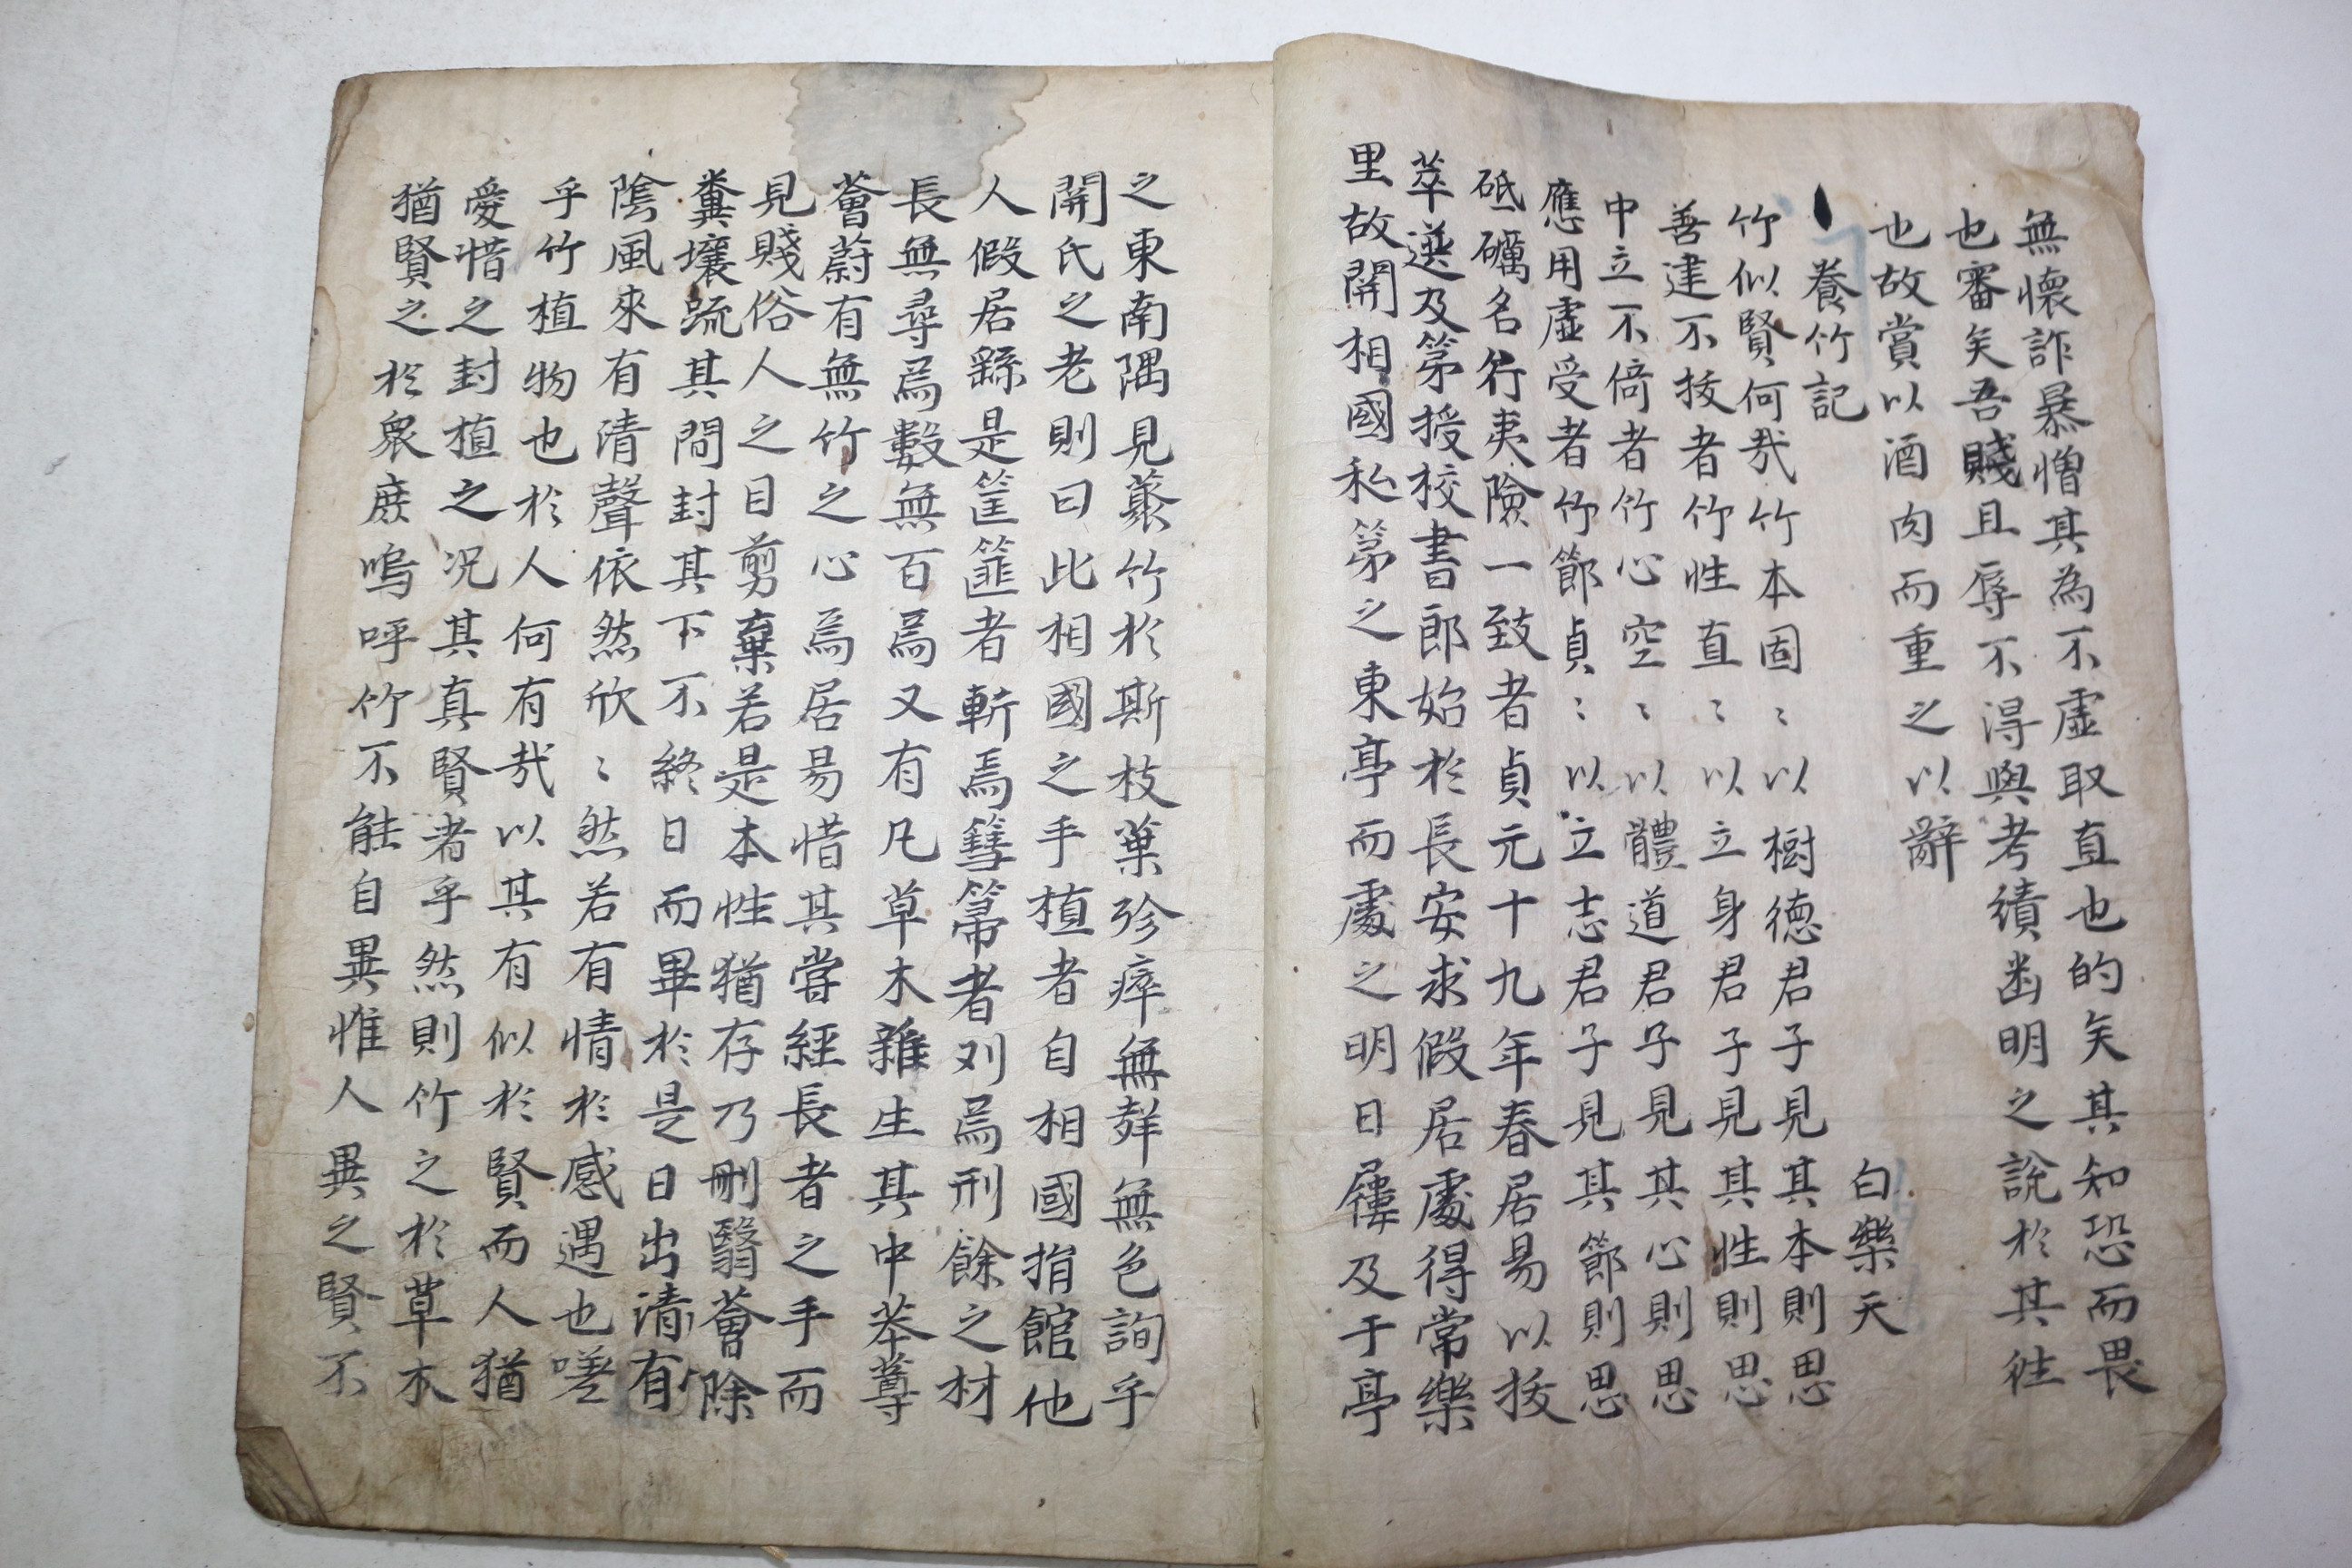 無懷詐暴憎其為不虛取直也的矣其知恐而畏
也審矣吾賤且辱不淂與考績幽明之說於其徃
也故賞以酒肉而重之以辭
養竹記 白樂天
竹似賢何㢤竹本固〻以樹德君子見其本則思
善建不拔者竹性直〻以立身君子見其性則思
中立不倚者竹心空〻以體道君子見其心則思
應用虛受者竹節貞〻以立志君子見其節則思
砥礪名行夷險一致者貞元十九年春居易以拔
萃選及第授校書郎始於長安求假居處得常樂
里故關相國私第之東亭而處之明日屨及于亭
之東南隅見叢竹於斯枝葉殄瘁無聲無色詢乎
關氏之老則曰此相國之手植者自相國捐館他
人假居繇是筐篚者斬焉篲箒者刈焉刑餘之材
長無尋焉數無百焉又有凡草木雜生其中菶䔿
薈蔚有無竹之心焉居易惜其嘗經長者之手而
見賤俗人之目剪棄若是本性猶存乃刪翳薈除
糞壤疏其間封其下不終日而畢於是日出清有
陰風來有清聲依然欣〻然若有情於感遇也嗟
乎竹植物也於人何有㢤以其有似於賢而人猶
愛惜之封植之况其真賢者乎然則竹之於草木
猶賢之於衆庶嗚呼竹不能自異惟人異之賢不